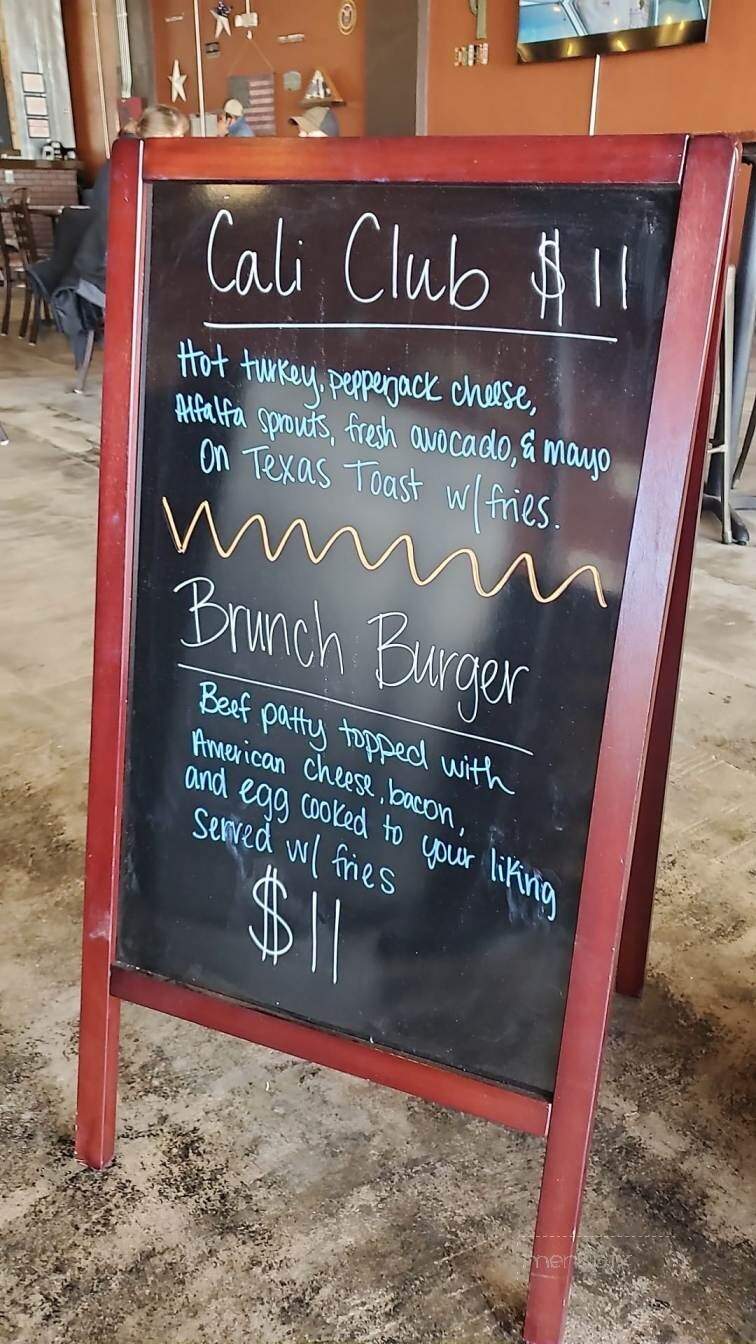 Cali Club $11
Hot turkey, pepperjack cheese,
Alfalfa sprouts, fresh avocado, & mayo
On Texas Toast w/fries.
Brunch Burger
Beef patty topped with
American cheese, bacon,
and egg cooked to your liking
Served w/ fries
$11